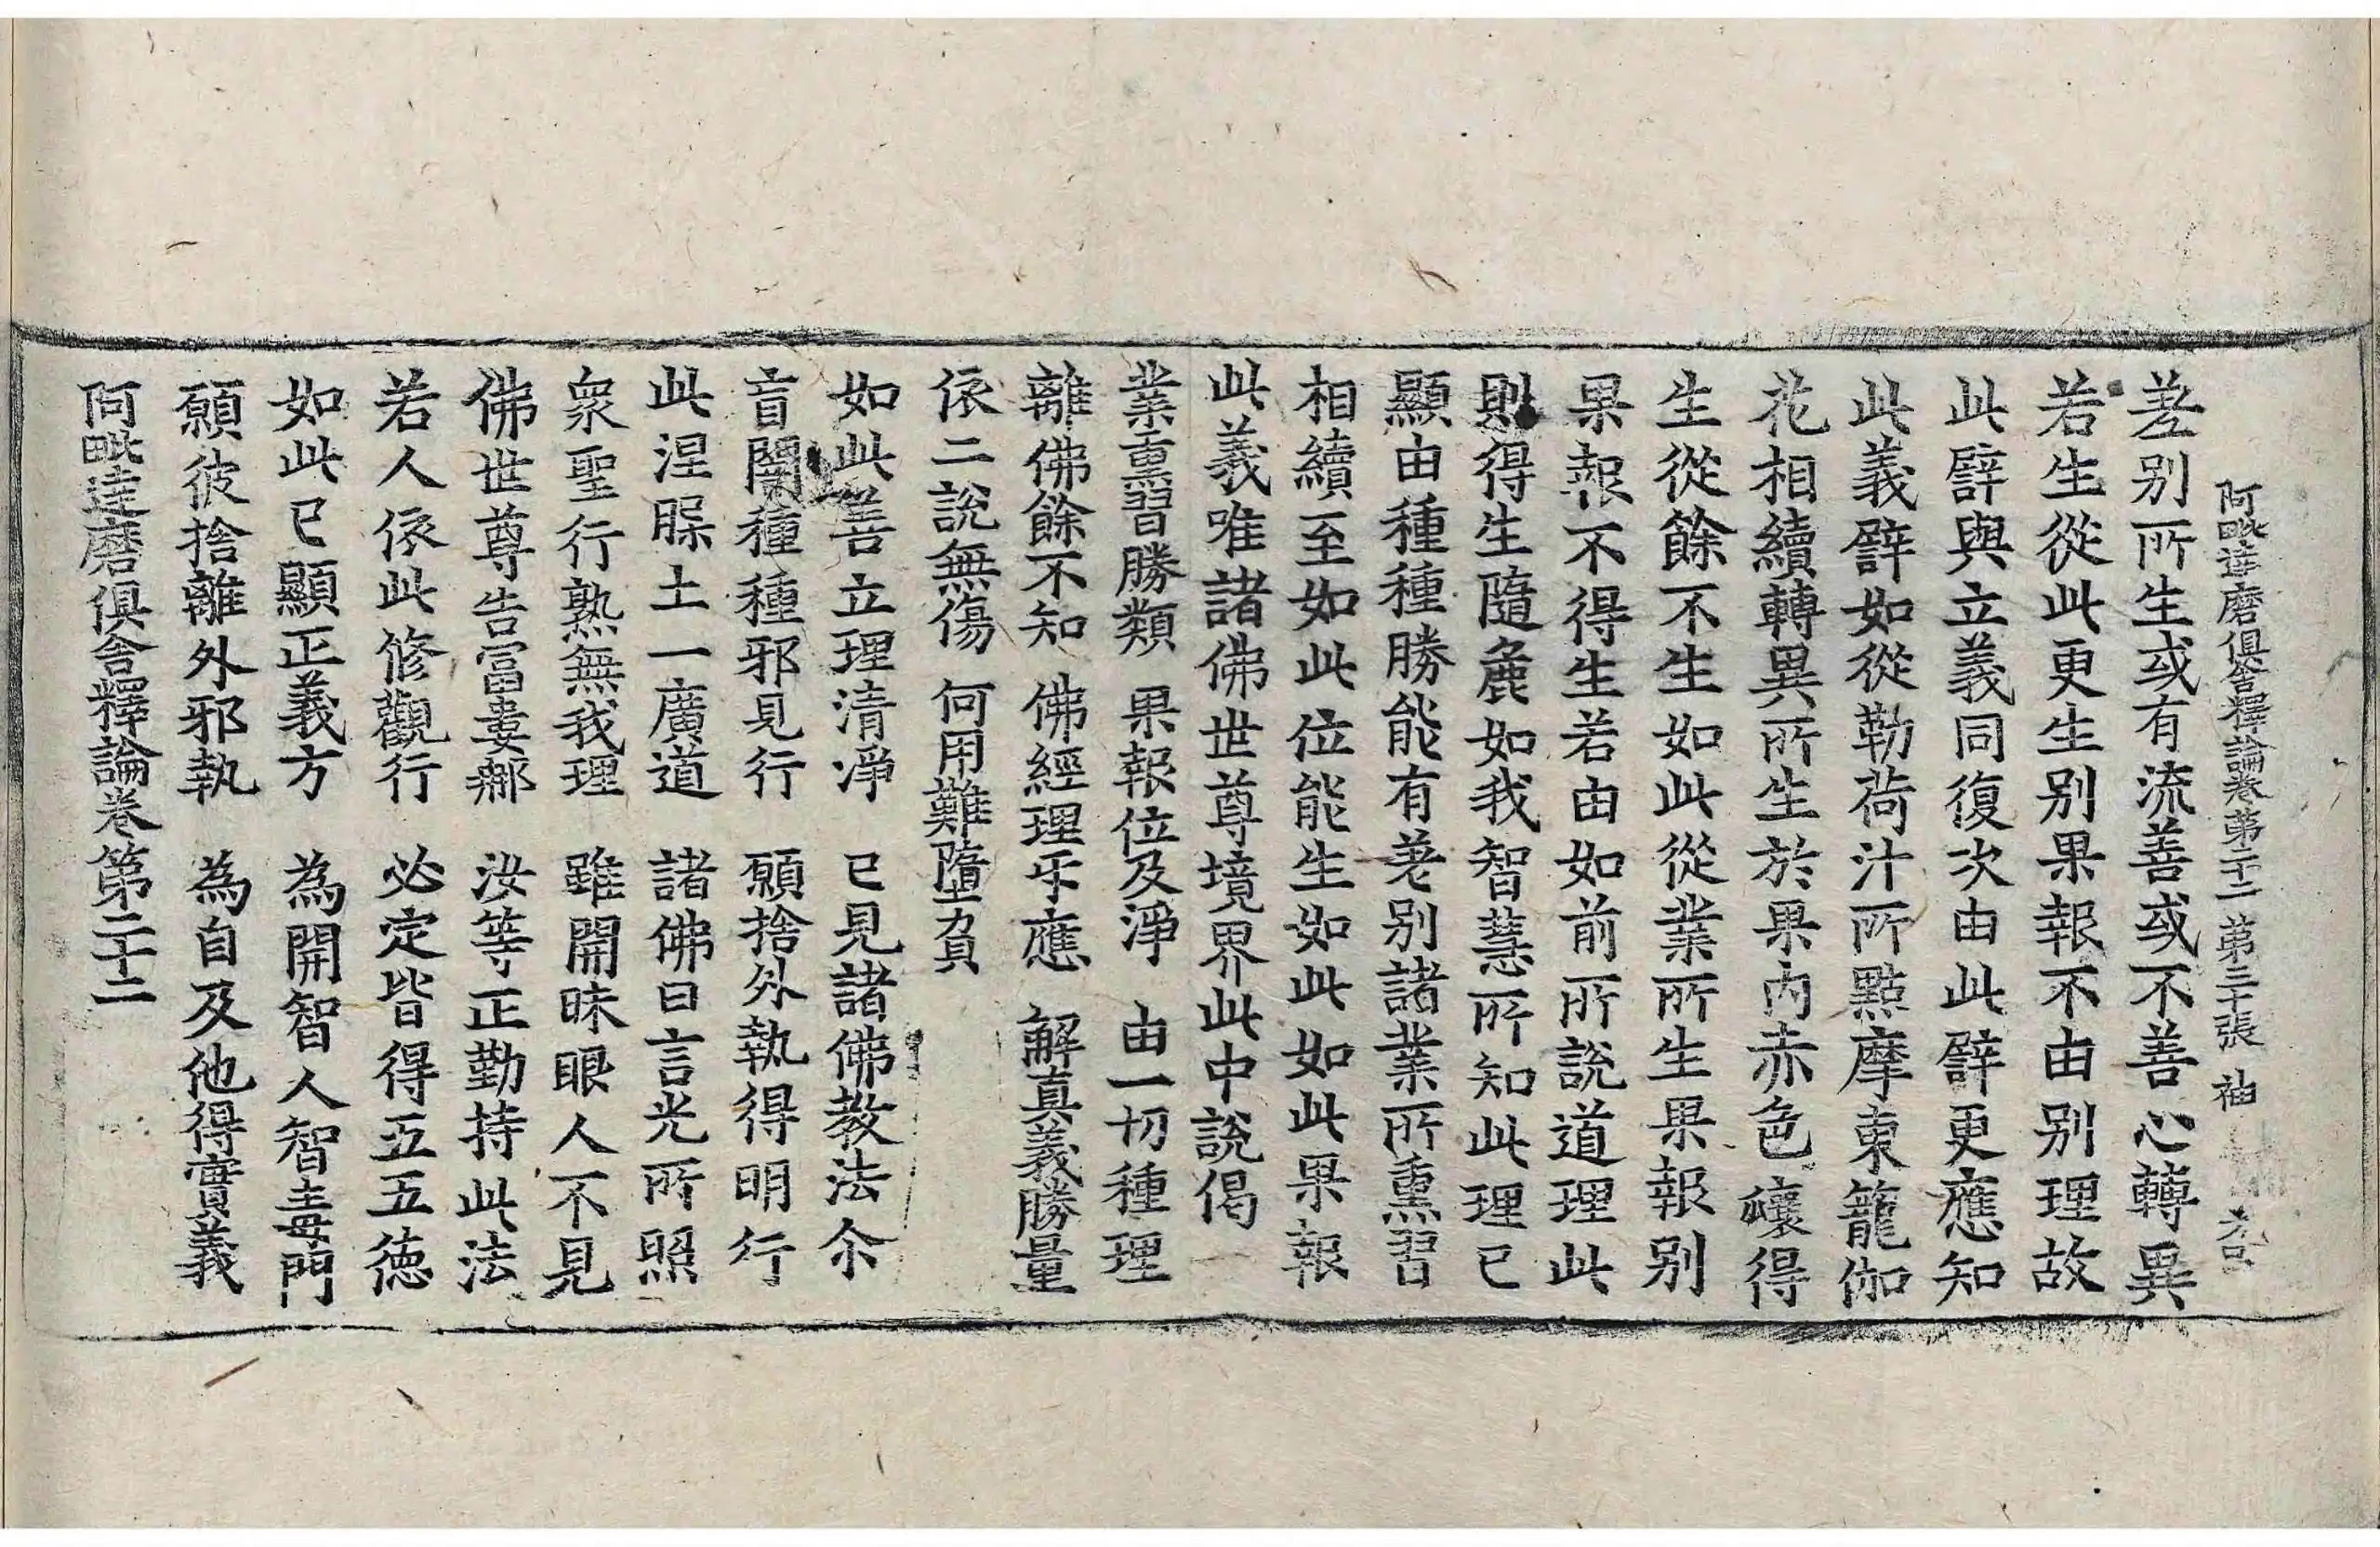 阿毗達磨俱舍釋論卷第二十二 第三十張 神
差別所生或有流善或不善心轉異
若生從此更生別果報不由別理故
此譬與立義同復次由此譬更應知
此義譬如從勒荷汁所點摩東籠伽
花相續轉異所生於果內赤色穰得
生從餘不生如此從業所生果報別
果報不得生若由如前所說道理此
則得生隨麁如我智慧所知此理已
顯由種種勝能有差別諸業所熏習
相續至如此位能生如此如此果報
此義唯諸佛世尊境界此中說偈
業熏習勝類 果報位及淨 由一切種理
離佛餘不知 佛經理乐應 解真義勝量
依二說無傷 何用難墮負
如此善立理清淨 已見諸佛教法尒
盲闇種種邪見行 願捨外執得明行
此涅脲土一廣道 諸佛日言光所照
衆聖行熟無我理 雖開昧眼人不見
佛世尊告富婁郍 汝等正勤持此法
若人依此修觀行 必定皆得五五德
如此已顯正義方 為開智人智毒門
願彼捨離外邪執 為自及他得實義
阿毗達磨俱舍釋論卷第二十二